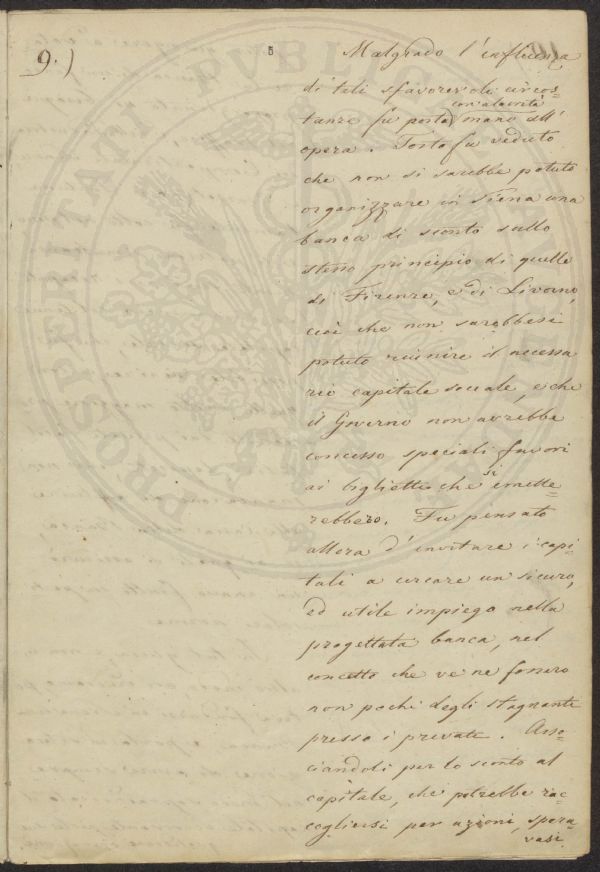 9.)
5
Malgrado l'influenza
di tali sfavorevoli circos=
con alacrità
tanze fu posta mano all'
opera. Tosto fu veduto
che non si sarebbe potuto
organizzare in Siena una
banca di sconto sullo
stesso principio di quelle
di Firenze, e di Livorno,
cioè che non sarebbesi
potuto riunire il necessa
rio capitale sociale, e che
il Governo non avrebbe
concesso speciali favori
si
ai biglietti che emette=
rebbero. Fu pensato
allora d'invitare i capi=
tali a cercare un sicuro,
ed utile impiego nella
progettata banca, nel
concetto che ve ne fossero
non pochi degli stagnanti
presso i privati. Asso=
ciandoli per lo sconto al
capitale, che potrebbe rac=
cogliersi per azioni, spera=
vasi
PROSPERITATI PUBLICAE